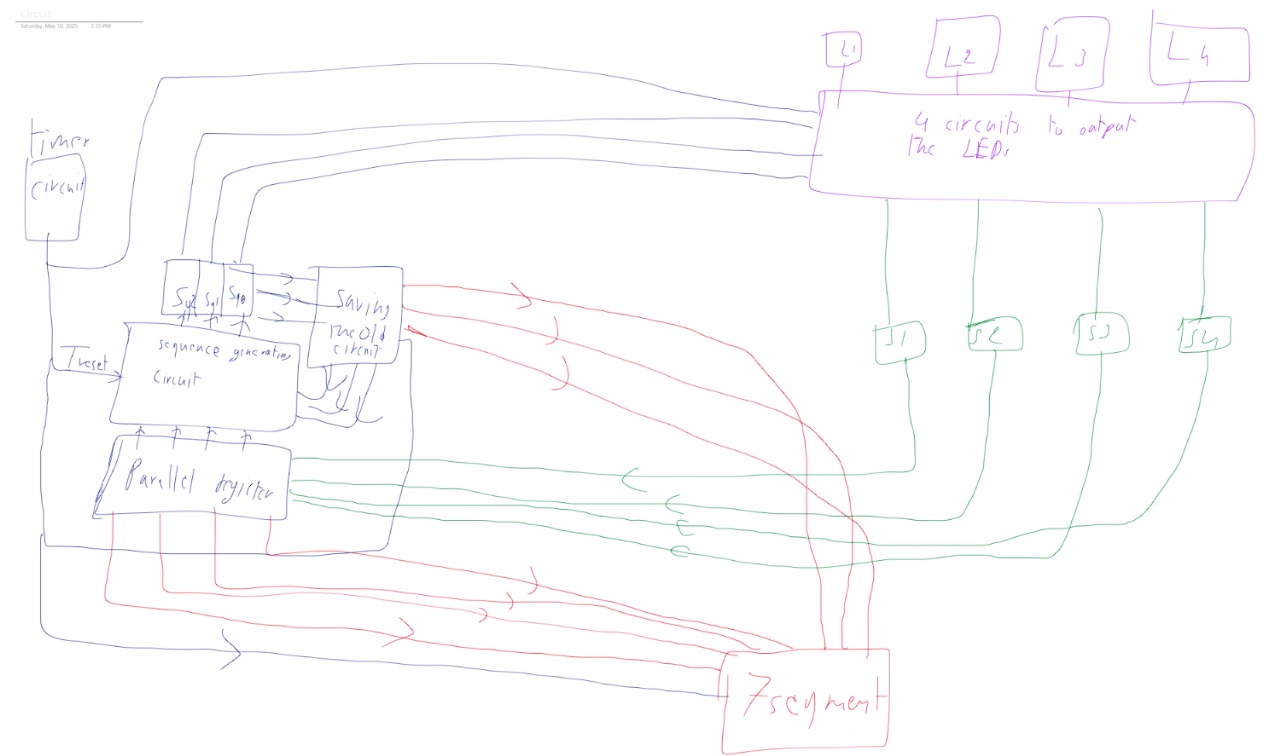 Circuit
Saturday, May 10, 2025 2:15 PM
L1
L2
L3
L4
4 circuits to output
the LEDs
timer
circuit
Sq2 Sq1 Sq0
Saving
the old
circuit
sequence generation
circuit
Treset
Parallel register
S1
S2
S3
S4
7segment